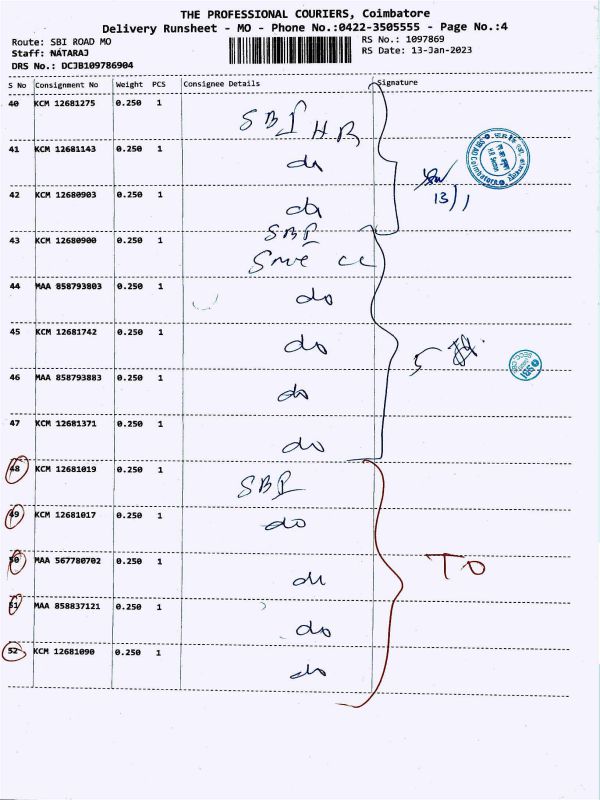 THE PROFESSIONAL COURIERS, Coimbatore
Delivery Runsheet - MO - Phone No.:0422-3505555 - Page No.:4
Route: SBI ROAD MO
RS No.: 1097869
Staff: NATARAJ
RS Date: 13-Jan-2023
DRS No.: DCJB109786904
S No Consignment No Weight PCS Consignee Details Signature
40 KCM 12681275 0.250 1 SBI HR
41 KCM 12681143 0.250 1 do
42 KCM 12680903 0.250 1 do
13/1
43 KCM 12680900 0.250 1 SBI
44 MAA 858793803 0.250 1 do
45 KCM 12681742 0.250 1 do
46 MAA 858793883 0.250 1 do
47 KCM 12681371 0.250 1 do
48 KCM 12681019 0.250 1 SBI
49 KCM 12681017 0.250 1 do
50 MAA 567780702 0.250 1 do
TO
51 MAA 858837121 0.250 1 do
52 KCM 12681090 0.250 1 do